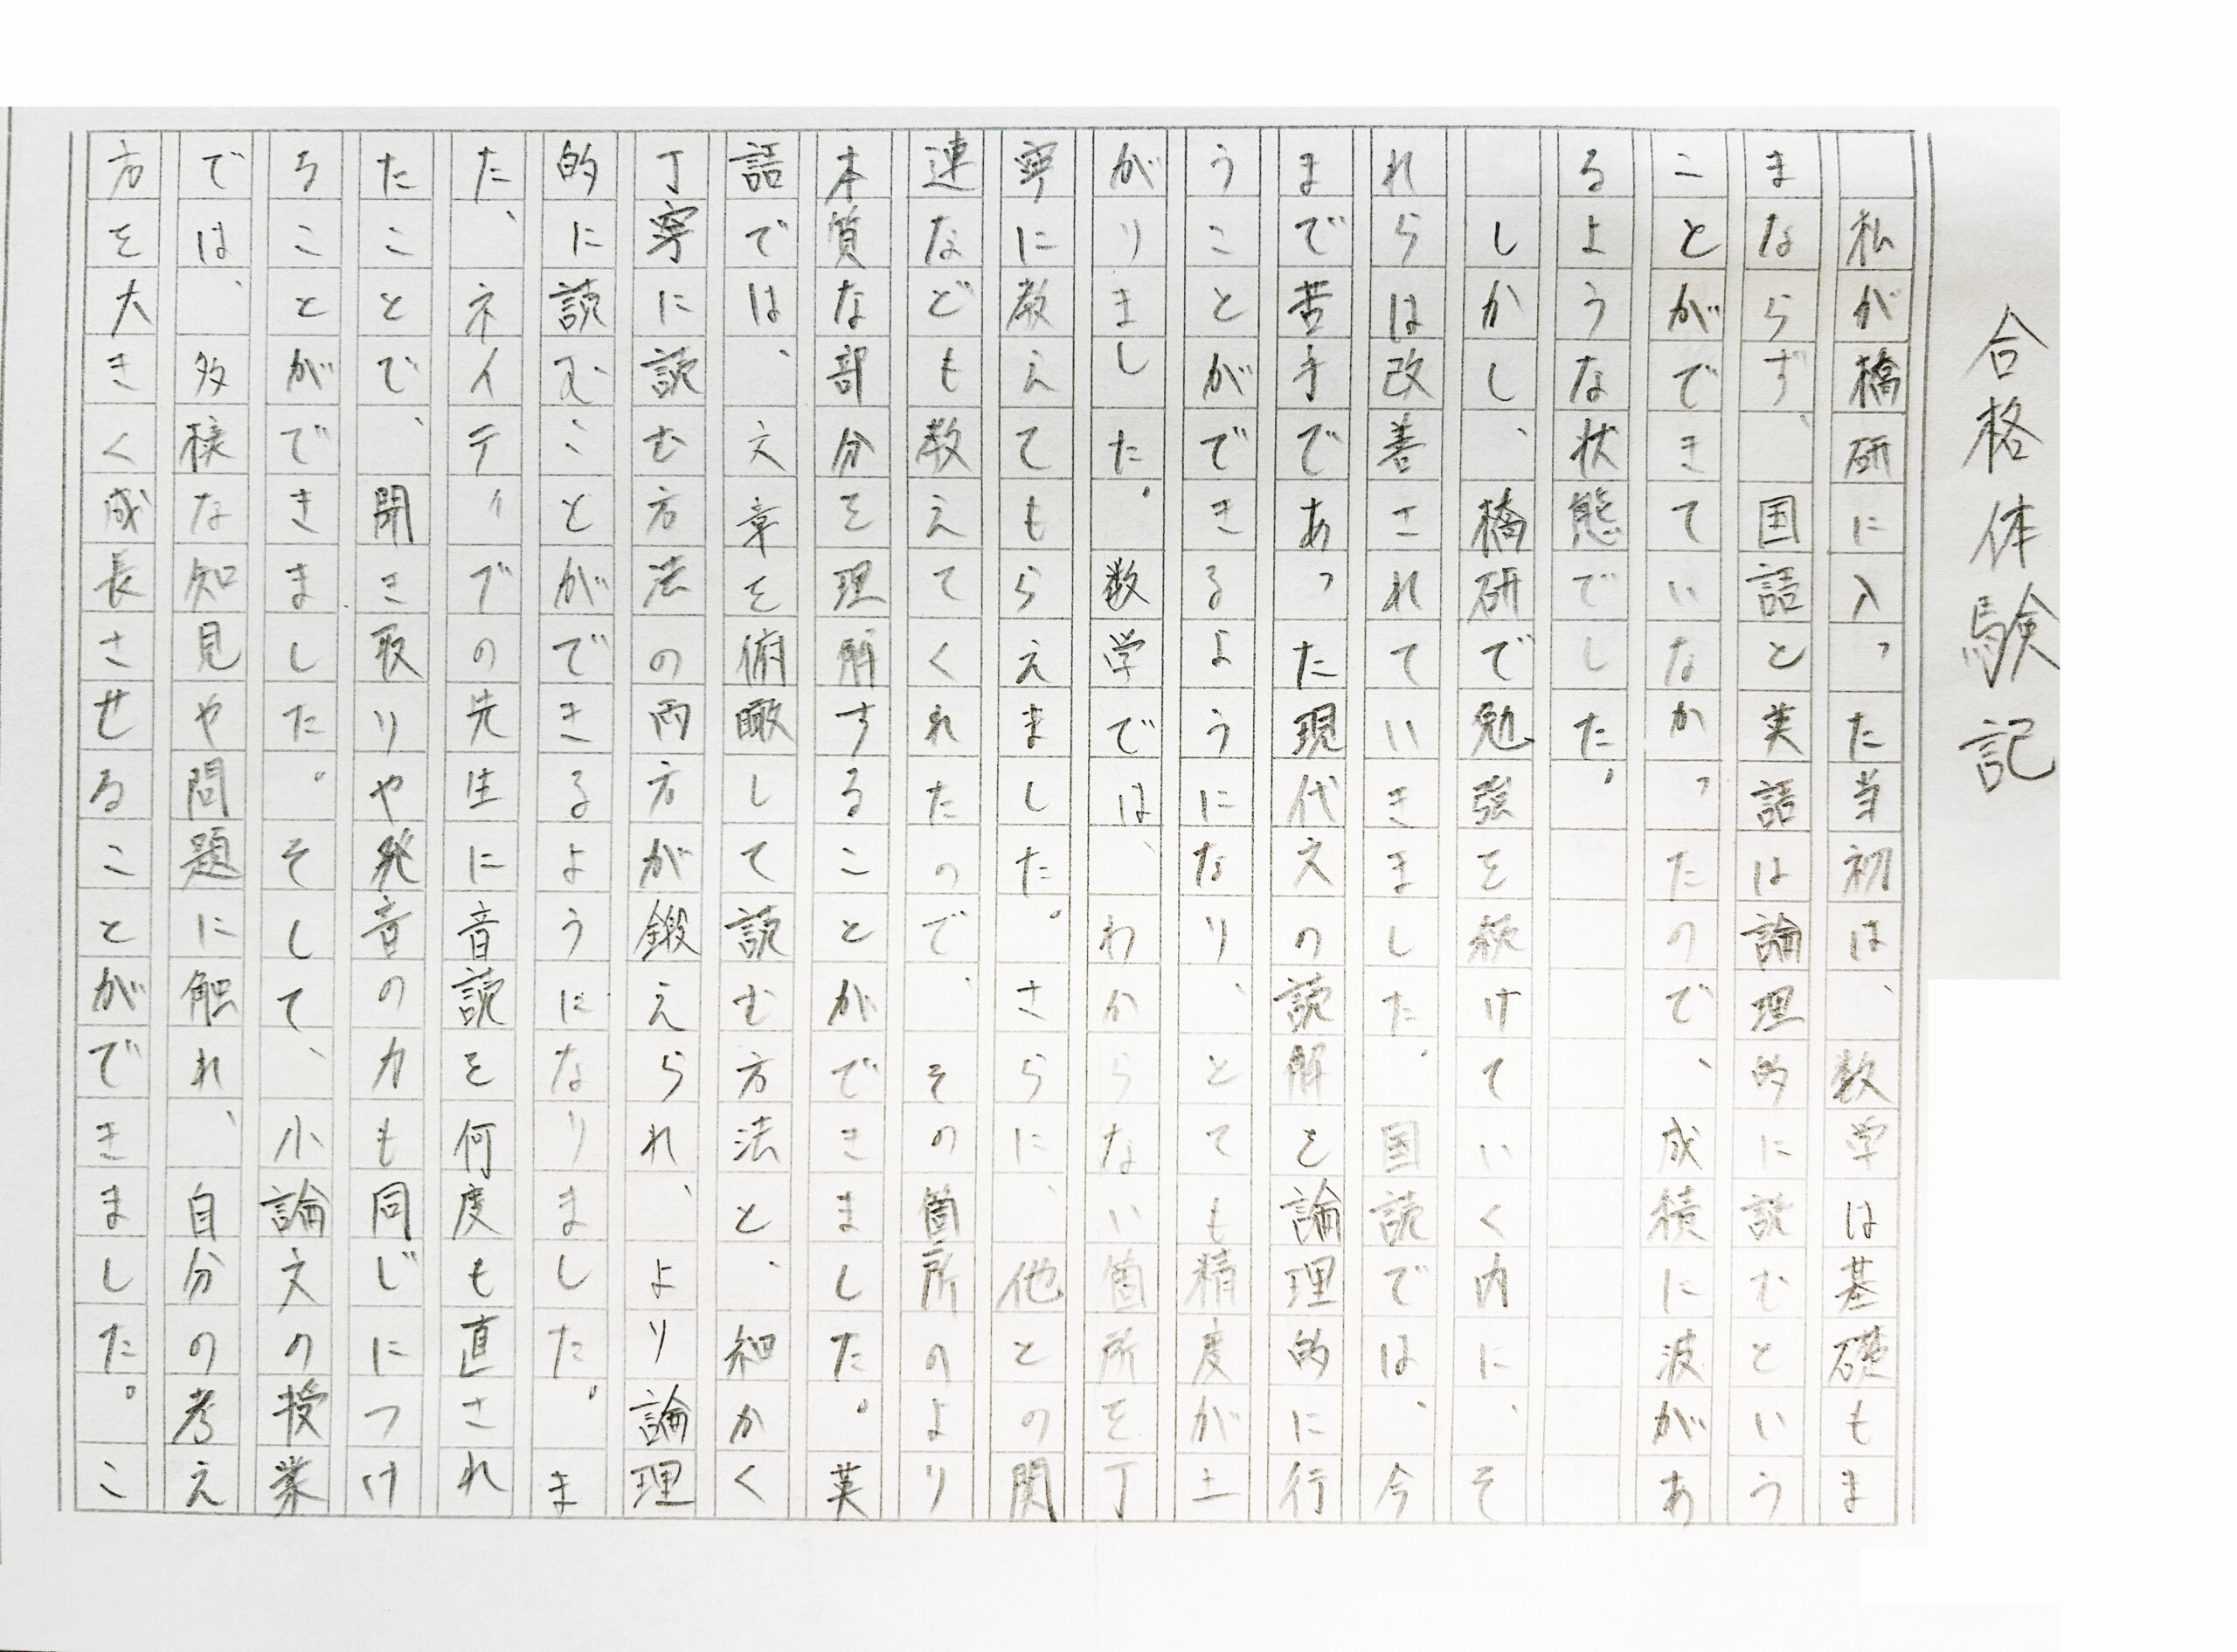 合格体験記
私が橋研に入った当初は、数学は基礎もま
まならず、国語と英語は論理的に読むという
ことができていなかったので、成積に波があ
るような状態でした。
しかし、橋研で勉強を続けていく内に、そ
れらは改善されていきました。国読では、今
まで苦手であった現代文の読解を論理的に行
うことができるようになり、とても精度が上
がりました。数学では、わからない箇所を丁
寧に教えてもらえました。さらに、他との関
連なども教えてくれたので、その箇所のより
本質な部分を理解することができました。英
語では、文章を俯瞰して読む方法と、細かく
丁寧に読む方法の両方が鍛えられ、より論理
的に読むことができるようになりました。ま
た、ネイティブの先生に音読を何度も直され
たことで、聞き取りや発音の力も同じにつけ
ることができました。そして、小論文の授業
では、多様な知見や問題に触れ、自分の考え
方を大きく成長させることができました。こ